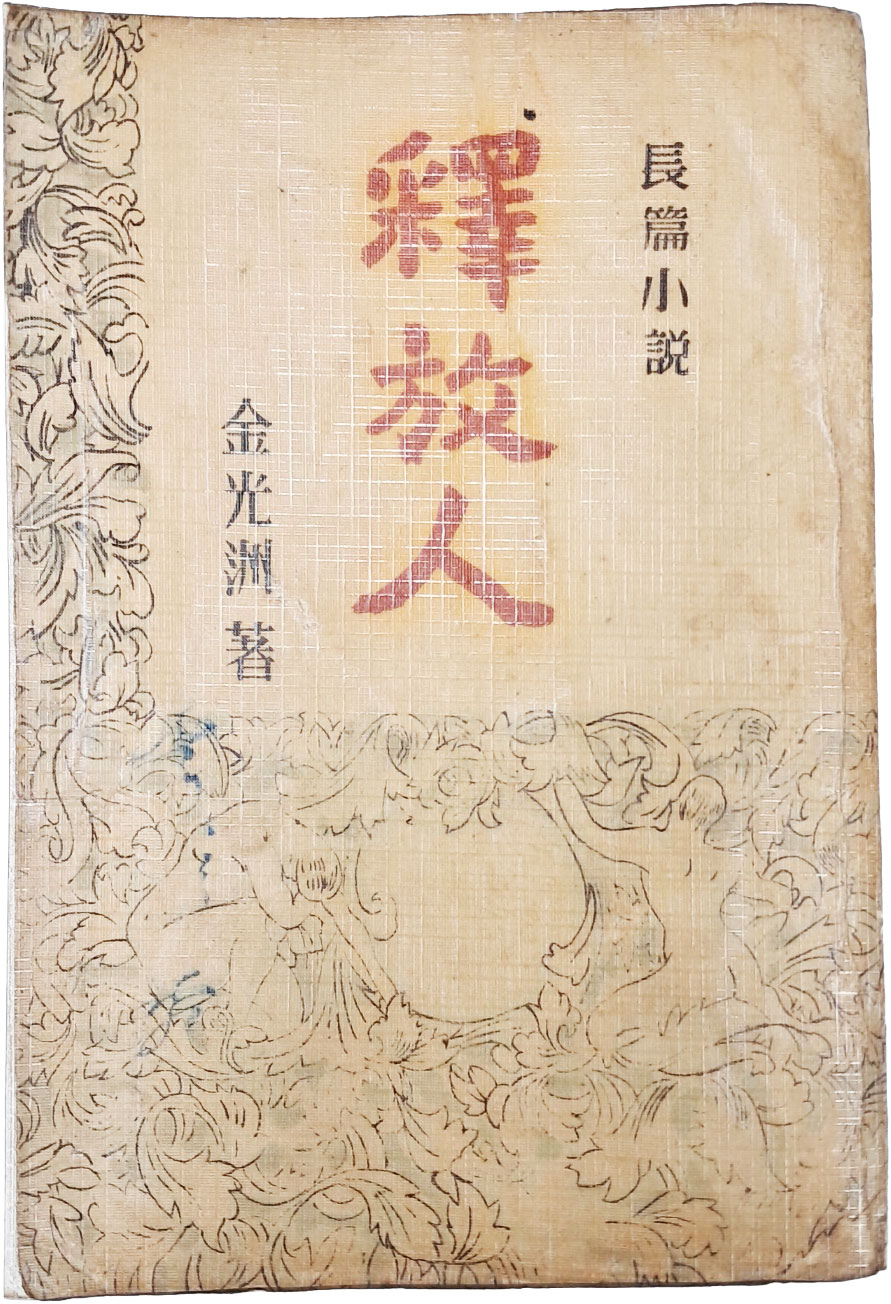 長篇小説
釋放人
金光洲 著